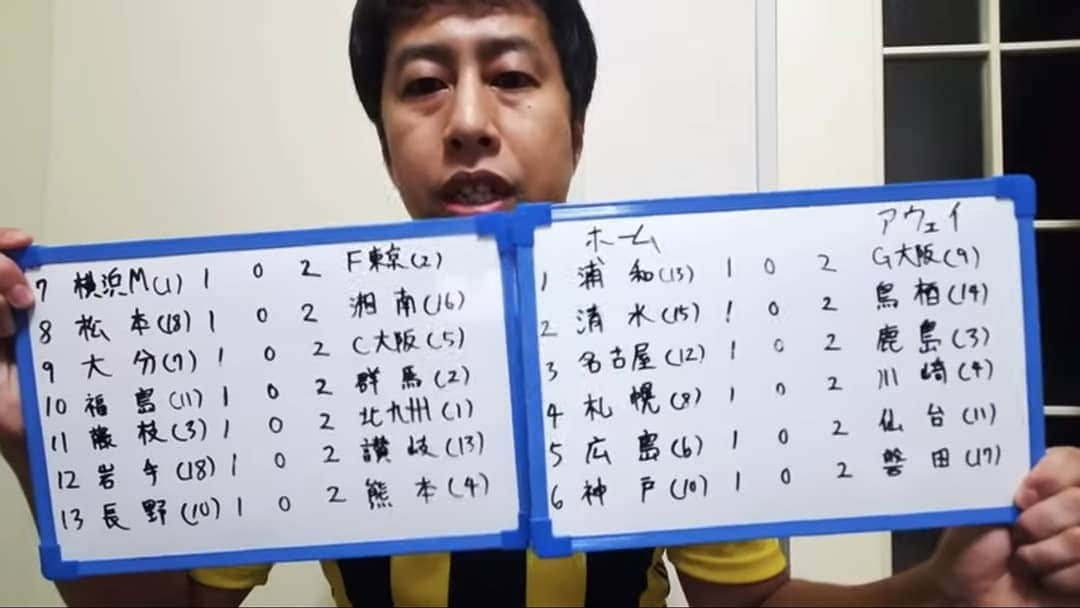 ホーム アウェイ
1 浦和(13) 1 0 2 G大阪(9)
2 清水(15) 1 0 2 鳥栖(14)
3 名古屋(12) 1 0 2 鹿島(3)
4 札幌(8) 1 0 2 川崎(4)
5 広島(6) 1 0 2 仙台(11)
6 神戸(10) 1 0 2 磐田(17)
7 横浜M(1) 1 0 2 F東京(2)
8 松本(18) 1 0 2 湘南(16)
9 大分(7) 1 0 2 C大阪(5)
10 福島(11) 1 0 2 群馬(2)
11 藤枝(3) 1 0 2 北九州(1)
12 岩手(18) 1 0 2 讃岐(13)
13 長野(10) 1 0 2 熊本(4)